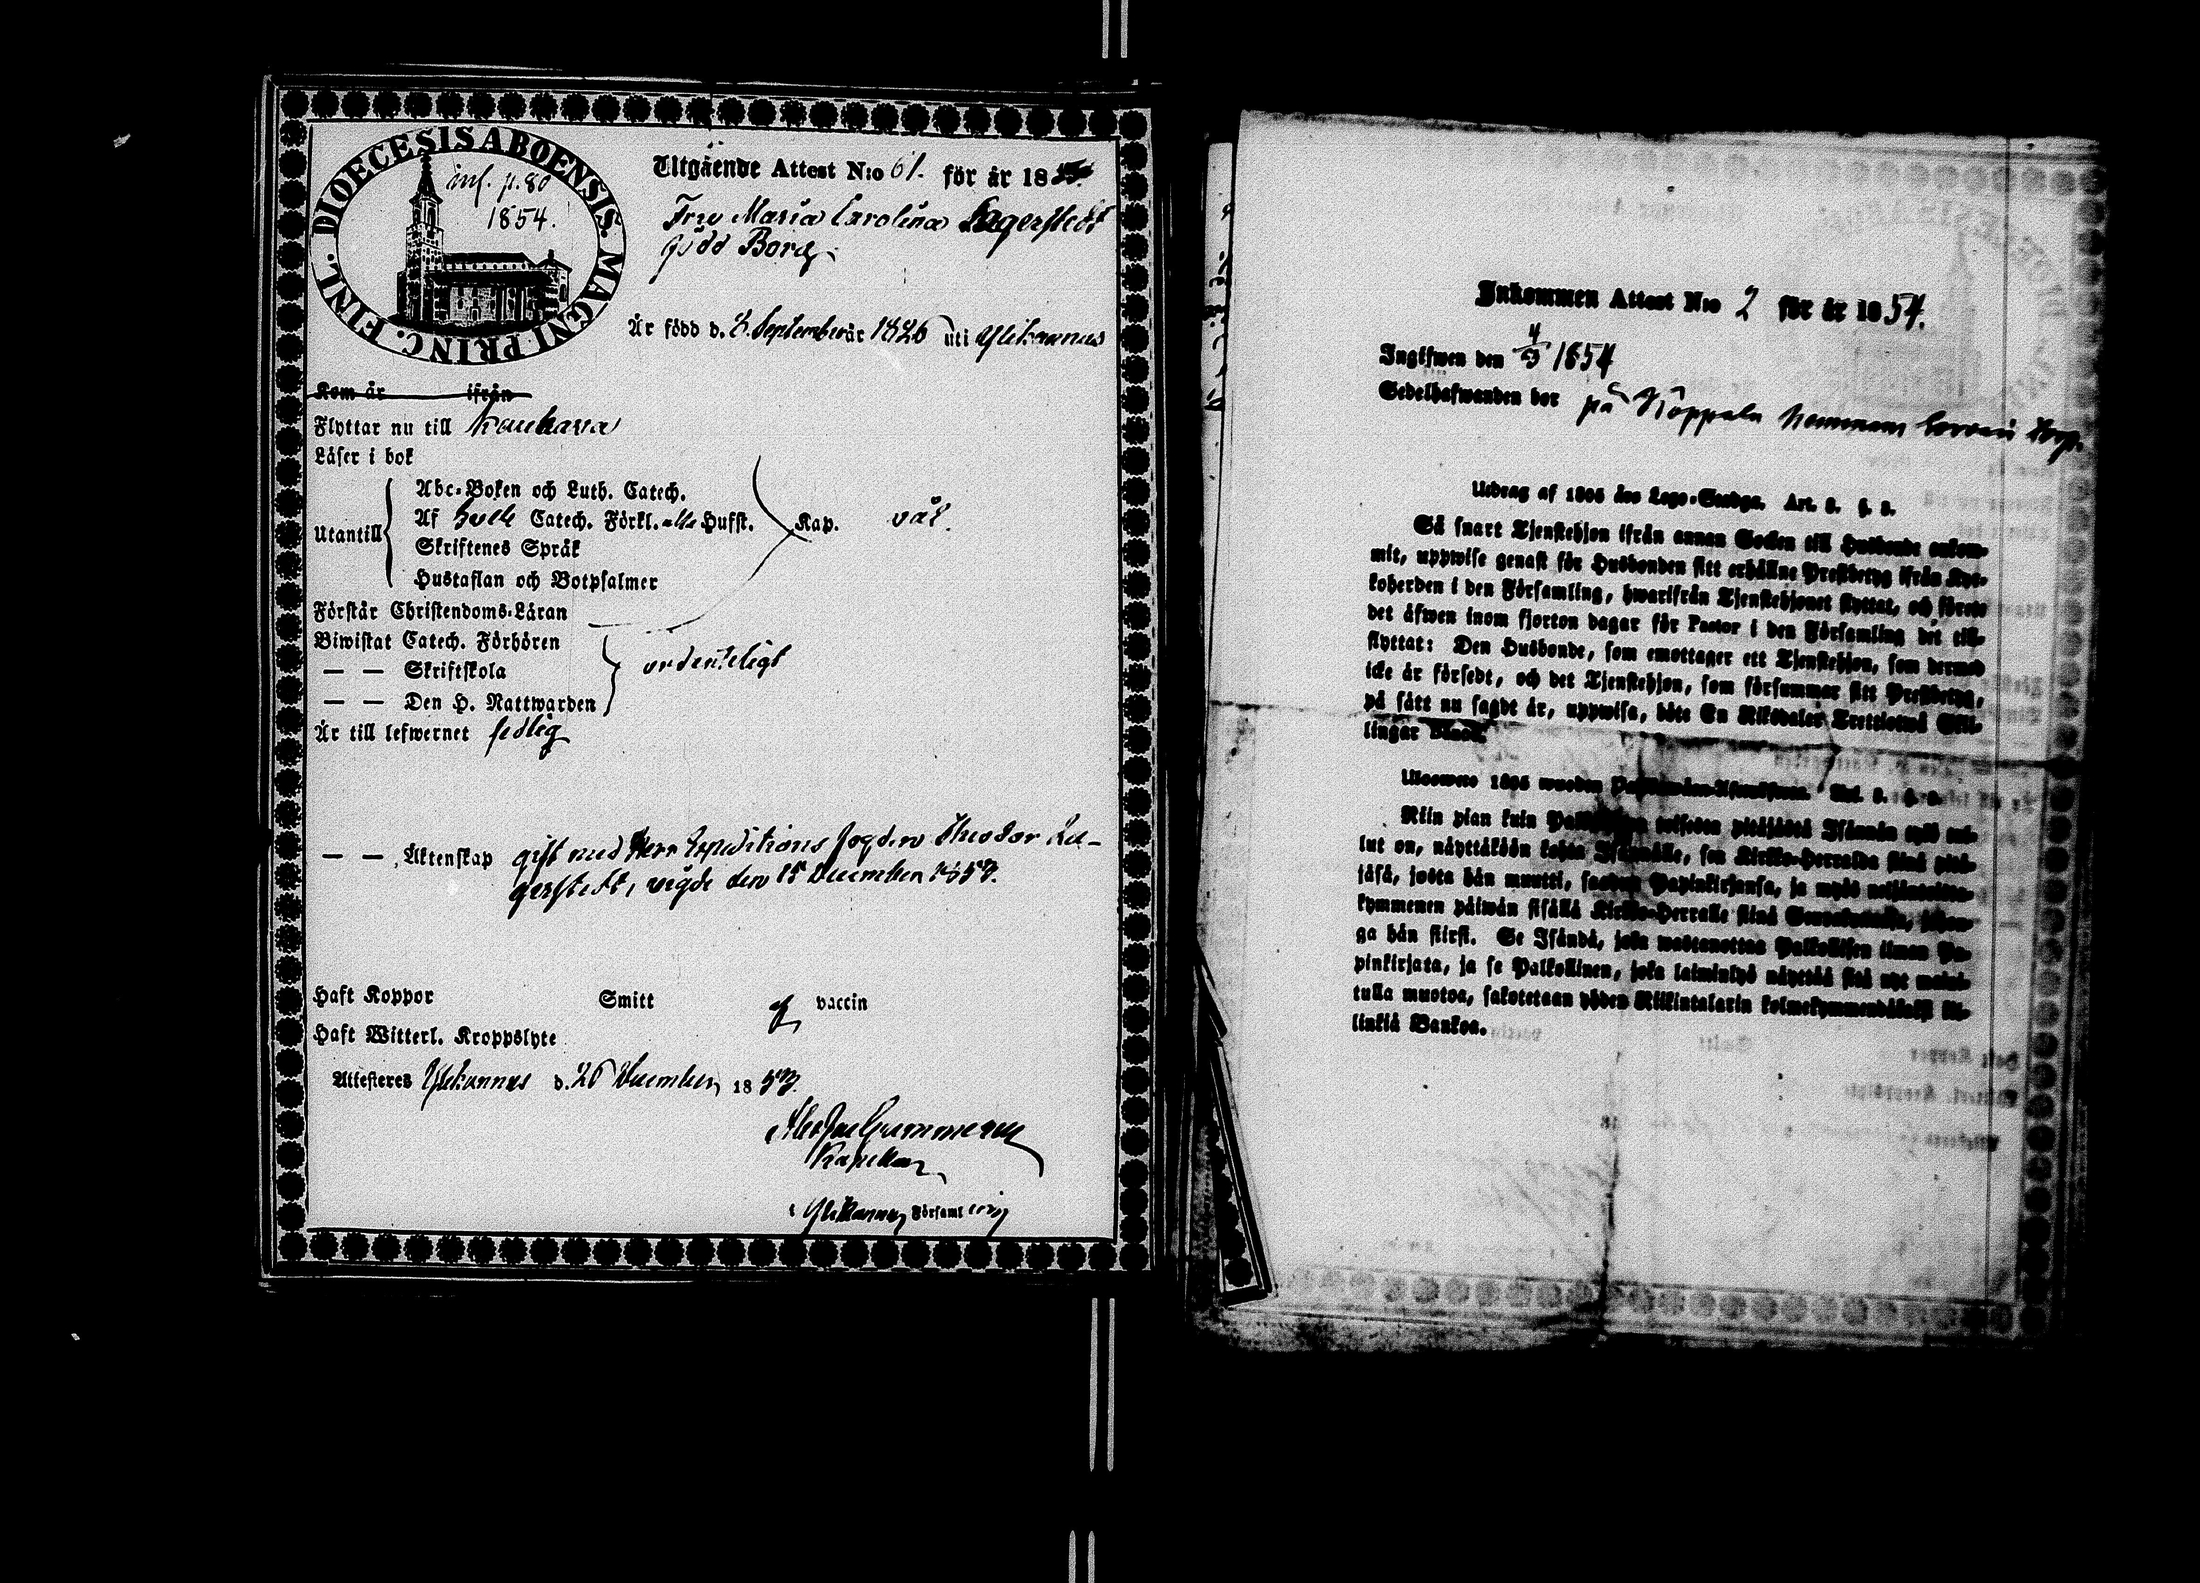 DIOECESIS ABOENSIS. MAGNI PRINC. FINL.
inf. p. 80
1854.
Utgående Attest N:o 61. för år 18
Fru Maria Carolina Lagerstedt
född Borg.
Är född d. 2 September år 1826 uti Ylikannus
Kom år ifrån
Flyttar nu till Kauhava
Läser i bok
Utantill
Abc-Boken och Luth. Catech.
Af Catech. Förkl. alla Hufst. Kap. väl.
Skriftenes Språk
Hustaflan och Botpsalmer
Förstår Christendoms-Läran
Biwistat Catech. Förhören
— — Skriftskola ordenteligt
— — Den H. Nattwarden
Är till lefwernet sedlig
— — Äktenskap gift med Herr Expeditions Fogden Theodor La-
gerstedt, vigde den 15 December 1853.
Haft Koppor Smitt vaccin
Haft Witterl. Kroppslyte
Attesteras Ylikannus d. 26 December 1853.
Kapellan
i Ylikannus Församling
Inkommen Attest N:o 2 för år 1854.
Ingifwen den 4/3 1854
Sedelhafwanden bor på Köppälä hemmans
Utdrag af 1805 års Lego-Stadga. Art. 2. §. 3.
Så snart Tjenstehjon ifrån annan Socken till Husbonde ankom-
mit, uppwise genast för Husbonden sitt erhållne Prestbetyg ifrån Kyr-
koherden i den Församling, hwarifrån Tjenstehjonet flyttat, och förete
det äfwen inom fjorton dagar för Pastor i den Församling det till-
flyttat: Den Husbonde, som emottager ett Tjenstehjon, som dermed
icke är försedt, och det Tjenstehjon, som försummar sitt Prestbetyg,
på sätt nu sagdt är, uppwisa, böte En Riksdaler Trettiotwå Skil-
lingar Banco.
Ulosweto 1805 wuoden
Niin pian kuin toisesta pitäjästä Isännän tygö tul-
lut on, näyttäköön kohta Isännälle, sen Kirkko-Herralda siinä pitä-
jäsä, josta hän muutti, saadun Papinkirjansa, ja myös neljäntoista-
kymmenen päiwän sisällä Kirkko-Herralle siinä Seurakunnasa, johon-
ga hän siirsi. Se Isändä, joka wastanottaa Palkollisen ilman Pa-
pinkirjata, ja se Palkollinen, joka laiminlyö näyttää sitä nyt maini-
tulla muotoa, sakotetaan yhden Riikintalarin kolmekymmendäkaksi kil-
linkiä Bankoa.